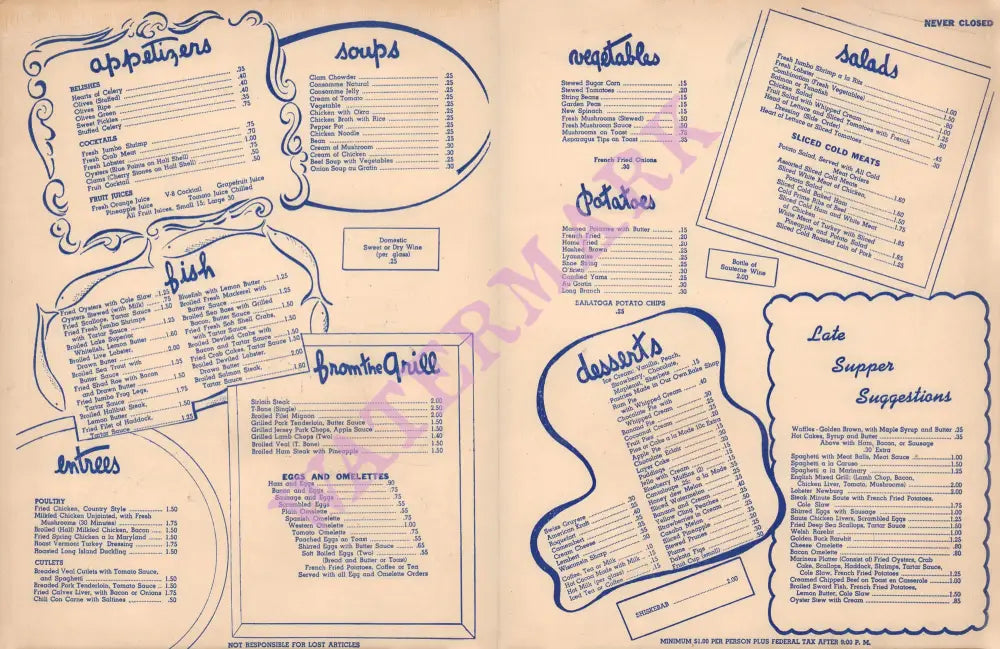 appetizers
RELISHES
Hearts of Celery .35
Olives (Stuffed) .40
Olives Ripe .40
Olives Green .40
Sweet Pickles .35
Stuffed Celery .75
COCKTAILS
Fresh Jumbo Shrimp .75
Fresh Crab Meat .70
Fresh Lobster 1.00
Oysters (Blue Points on Half Shell) .50
Clams (Cherry Stones on Half Shell) .50
Fruit Cocktail .50
FRUIT JUICES
V-8 Cocktail Grapefruit Juice
Fresh Orange Juice Tomato Juice Chilled
Pineapple Juice
All Fruit Juices, Small 15; Large 30
soups
Clam Chowder .25
Consomme Natural .25
Consomme Jelly .25
Cream of Tomato .25
Vegetable .25
Chicken with Okra .25
Chicken Broth with Rice .25
Pepper Pot .25
Chicken Noodle .25
Bean .25
Cream of Mushroom .30
Cream of Chicken .30
Beef Soup with Vegetables .25
Onion Soup au Gratin .30
Domestic
Sweet or Dry Wine
(per glass)
.25
fish
Fried Oysters with Cole Slaw 1.25
Oysters Stewed (with Milk) .75
Fried Scallops, Tartar Sauce 1.50
Fried Fresh Jumbo Shrimps
with Tartar Sauce
Broiled Lake Superior
Whitefish, Lemon Butter 1.60
Broiled Live Lobster,
Drawn Butter 2.00
Broiled Sea Trout with
Butter Sauce 1.35
Fried Shad Roe with Bacon
and Drawn Butter
Fried Jumbo Frog Legs,
Tartar Sauce
Broiled Halibut Steak,
Lemon Butter 1.50
Fried Filet of Haddock,
Tartar Sauce 1.25
Bluefish with Lemon Butter 1.25
Broiled Fresh Mackerel with
Butter Sauce 1.25
Broiled Sea Bass with Grilled
Bacon, Butter Sauce
Fried Fresh Soft Shell Crabs,
with Tartar Sauce 1.50
Broiled Deviled Crabs with
Bacon and Tartar Sauce 1.50
Fried Crab Cakes, Tartar Sauce 1.50
Broiled Deviled Lobster,
Drawn Butter 2.00
Broiled Salmon Steak,
Tartar Sauce 1.50
from the Grill
Sirloin Steak 2.00
T-Bone (Single) 2.50
Broiled Filet Mignon 2.00
Grilled Pork Tenderloin, Butter Sauce 1.50
Grilled Jersey Pork Chops, Apple Sauce 1.50
Grilled Lamb Chops (Two) 1.40
Broiled Veal (T. Bone) 1.50
Broiled Ham Steak with Pineapple 1.50
EGGS AND OMELETTES
Ham and Eggs .90
Bacon and Eggs .75
Sausage and Eggs .75
Scrambled Eggs .55
Plain Omelette .55
Spanish Omelette .75
Western Omelette 1.00
Tomato Omelette .75
Poached Eggs on Toast .55
Shirred Eggs with Butter Sauce .65
Soft Boiled Eggs (Two) .55
(Bread and Butter or Toast)
French Fried Potatoes, Coffee or Tea
Served with all Egg and Omelette Orders
entrees
POULTRY
Fried Chicken, Country Style 1.50
Milkfed Chicken Unjointed, with Fresh
Mushrooms (30 Minutes) 1.75
Broiled (Half) Milkfed Chicken, Bacon 1.50
Fried Spring Chicken a la Maryland 1.50
Roast Vermont Turkey Dressing 1.75
Roasted Long Island Duckling 1.50
CUTLETS
Breaded Veal Cutlets with Tomato Sauce,
and Spaghetti 1.50
Breaded Pork Tenderloin, Tomato Sauce 1.50
Fried Calves Liver, with Bacon or Onions 1.75
Chili Con Carne with Saltines .50
NOT RESPONSIBLE FOR LOST ARTICLES
NEVER CLOSED
vegetables
Stewed Sugar Corn .15
Stewed Tomatoes .20
String Beans .15
Garden Peas .15
New Spinach .15
Fresh Mushrooms (Stewed) .50
Fresh Mushroom Sauce .50
Mushrooms on Toast .75
Asparagus Tips on Toast .35
French Fried Onions
.30
potatoes
Mashed Potatoes with Butter .15
French Fried .20
Home Fried .20
Hashed Brown .25
Lyonnaise .25
Shoe String .25
O'Brien .30
Candied Yams .25
Au Gratin .30
Long Branch .30
SARATOGA POTATO CHIPS
.25
salads
Fresh Jumbo Shrimp a la Rite
Fresh Lobster 1.00
Combination (Fresh Vegetables) 1.50
Salmon or Tunafish
Chicken Salad 1.00
Fruit Salad with Whipped Cream 1.25
Head of Lettuce and Sliced Tomatoes with French
Dressing (Side Order) .45
Heart of Lettuce or Sliced Tomatoes .30
SLICED COLD MEATS
Potato Salad, Served with All Cold
Meat Orders
Assorted Sliced Cold Meats
Sliced White Meat of Chicken,
Potato Salad 1.60
Sliced Cold Baked Ham
Cold Prime Ribs of Beef 1.50
Sliced Cold Ham and White Meat
of Chicken 1.75
White Meat of Turkey with Sliced
Pineapple and Potato Salad 1.85
Sliced Cold Roasted Loin of Pork 1.25
Bottle of
Sauterne Wine
2.00
desserts
Ice Cream: Vanilla, Peach,
Strawberry, Chocolate
Maplenut, Sherbets
Pastries Made in Our Own Bake Shop
Rum Pie
with Whipped Cream .40
Chocolate Pie with
Whipped Cream
Banana Pie
Cocoanut Cream
Fruit Pies
Pies or Cake a la Mode 10c Extra
Apple Pie
Chocolate Eclair
Puddings
Layer Cake
Jello with Cream
Blueberry Muffins (2)
Cantaloupe a la Mode
Honey Dew Melon
Sliced Watermelon
Banana and Cream
Yellow Cling Peaches
Strawberries in Cream
Casaba Melon
Sliced Pineapple
Stewed Prunes
Plums
Kadota Figs
Fruit Cup (small)
Swiss Gruyere
American Kraft
Roquefort
Camembert
Cream Cheese
Liederkranz
Wisconsin Sharp
Coffee, Tea or Milk
Hot Cocoa Made with Milk
Hot Milk (per glass)
Iced Tea or Coffee
SHISKEBAB 2.00
Late
Supper
Suggestions
Waffles - Golden Brown, with Maple Syrup and Butter .35
Hot Cakes, Syrup and Butter .35
Above with Ham, Bacon, or Sausage
.30 Extra
Spaghetti with Meat Balls, Meat Sauce .90
Spaghetti a la Caruso 1.50
Spaghetti a la Marinary 1.25
English Mixed Grill: (Lamb Chop, Bacon,
Chicken Liver, Tomato, Mushrooms) 2.00
Lobster Newburg 2.00
Steak Minute Sauce with French Fried Potatoes,
Cole Slaw 1.75
Shirred Eggs with Sausage 1.00
Saute Chicken Livers, Scrambled Eggs 1.25
Fried Deep Sea Scallops, Tartar Sauce 1.50
Welsh Rarebit 1.00
Golden Buck Rarebit 1.25
Cheese Omelette .80
Bacon Omelette .80
Mariners Platter (Consist of) Fried Oysters, Crab
Cake, Scallops, Haddock, Shrimps, Tartar Sauce,
Cole Slaw, French Fried Potatoes 1.25
Creamed Chipped Beef on Toast en Casserole 1.00
Broiled Sword Fish, French Fried Potatoes,
Lemon Butter, Cole Slaw 1.50
Oyster Stew with Cream .85
MINIMUM $1.00 PER PERSON PLUS FEDERAL TAX AFTER 8:00 P. M.
WATERMARK